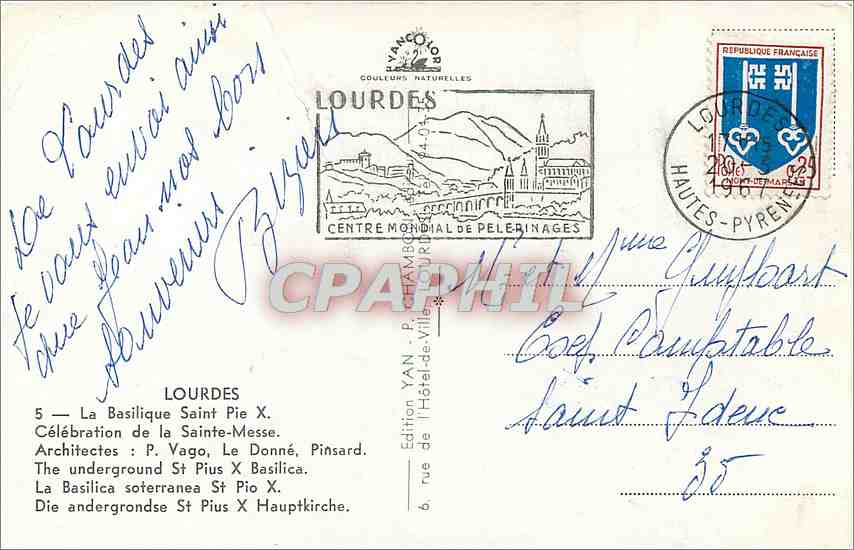 YANCOLOR
COULEURS NATURELLES
LOURDES
CENTRE MONDIAL DE PELERINAGES
REPUBLIQUE FRANÇAISE
POSTES 0,25
MONT-DE-MARSAN
LOURDES
17H15
20-3
1967
HAUTES-PYRENEES
De Lourdes
Je vous envoi ainsi
que Jean nos bons
souvenirs
CPAPHIL
M et Mme
Chef Comptable
Saint
35
LOURDES
5 — La Basilique Saint Pie X.
Célébration de la Sainte-Messe.
Architectes : P. Vago, Le Donné, Pinsard.
The underground St Pius X Basilica.
La Basilica soterranea St Pio X.
Die andergrondse St Pius X Hauptkirche.
Edition YAN - P. CHAMBON
6, rue de l'Hôtel-de-Ville, LOURDES